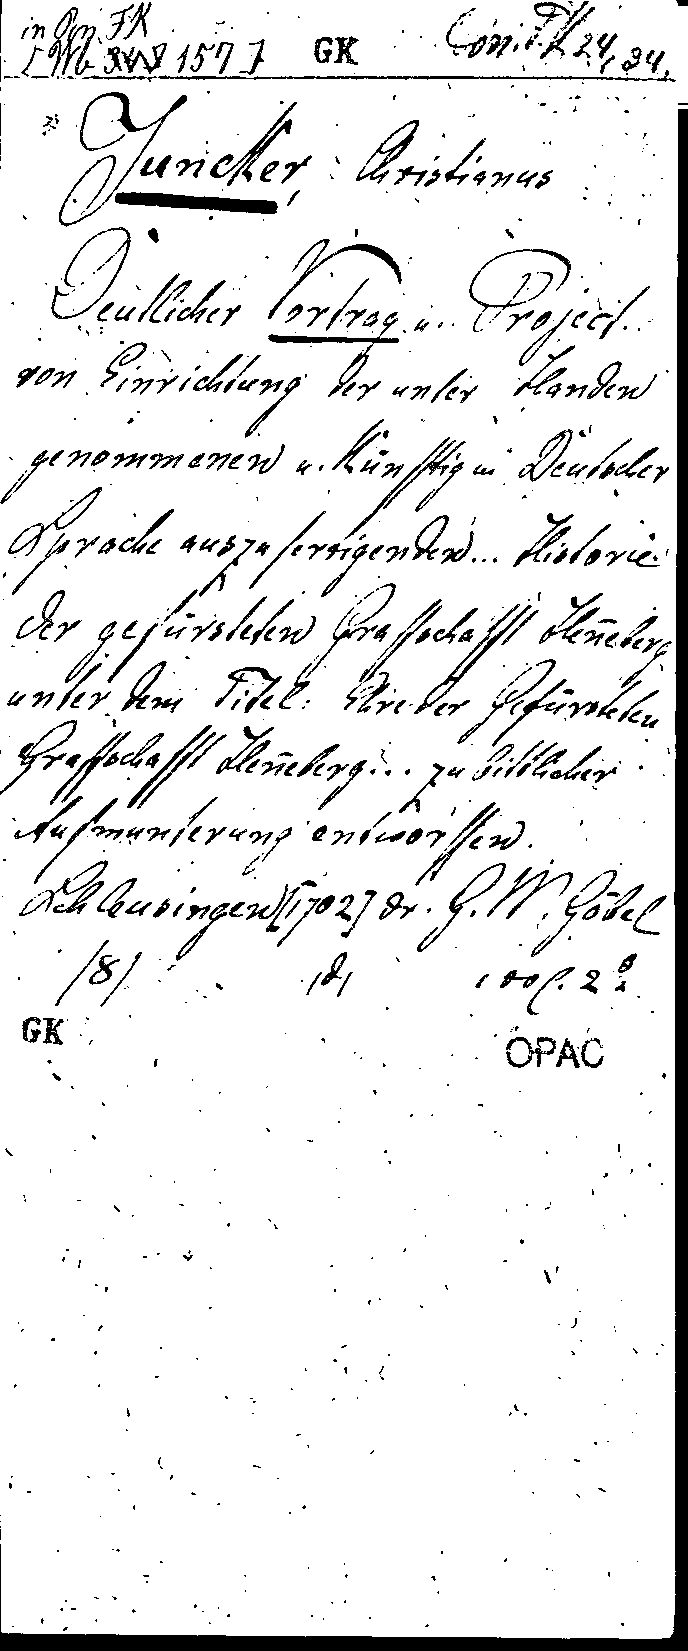 in Pon. FK
[Wb 1577] GK Con. FK 24, 34.
* Juncker, Christianus
Deutlicher Vortrag u. Project
von Einrichtung der unter Handen
genommenen u. Künfftig in Deutscher
Sprache auszufertigenden... Historie
der gefürsteten Graffschafft Heñeberg
unter dem Titel: Ehre der Gefürsteten
Graffschafft Heñeberg... zu bittlicher
Aufmunterung entworffen.
Schleusingen [1702] dr. G. W. Göbel
/8/ 2°
GK OPAC